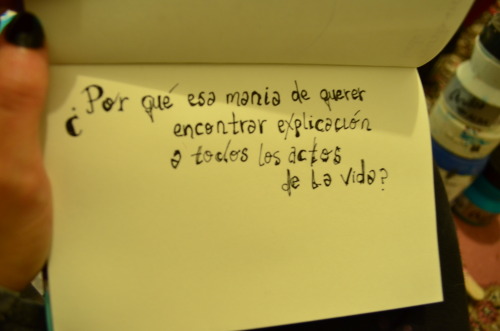 ¿Por qué esa mania de querer
encontrar explicación
a todos los actos
de la vida?